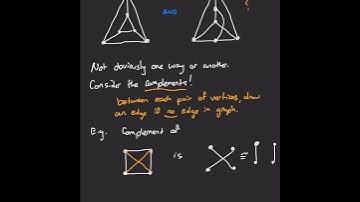 and ?
Not obviously one way or another.
Consider the complements!
between each pair of vertices, draw
an edge if no edge in graph.
E.g. Complement of
is ≅